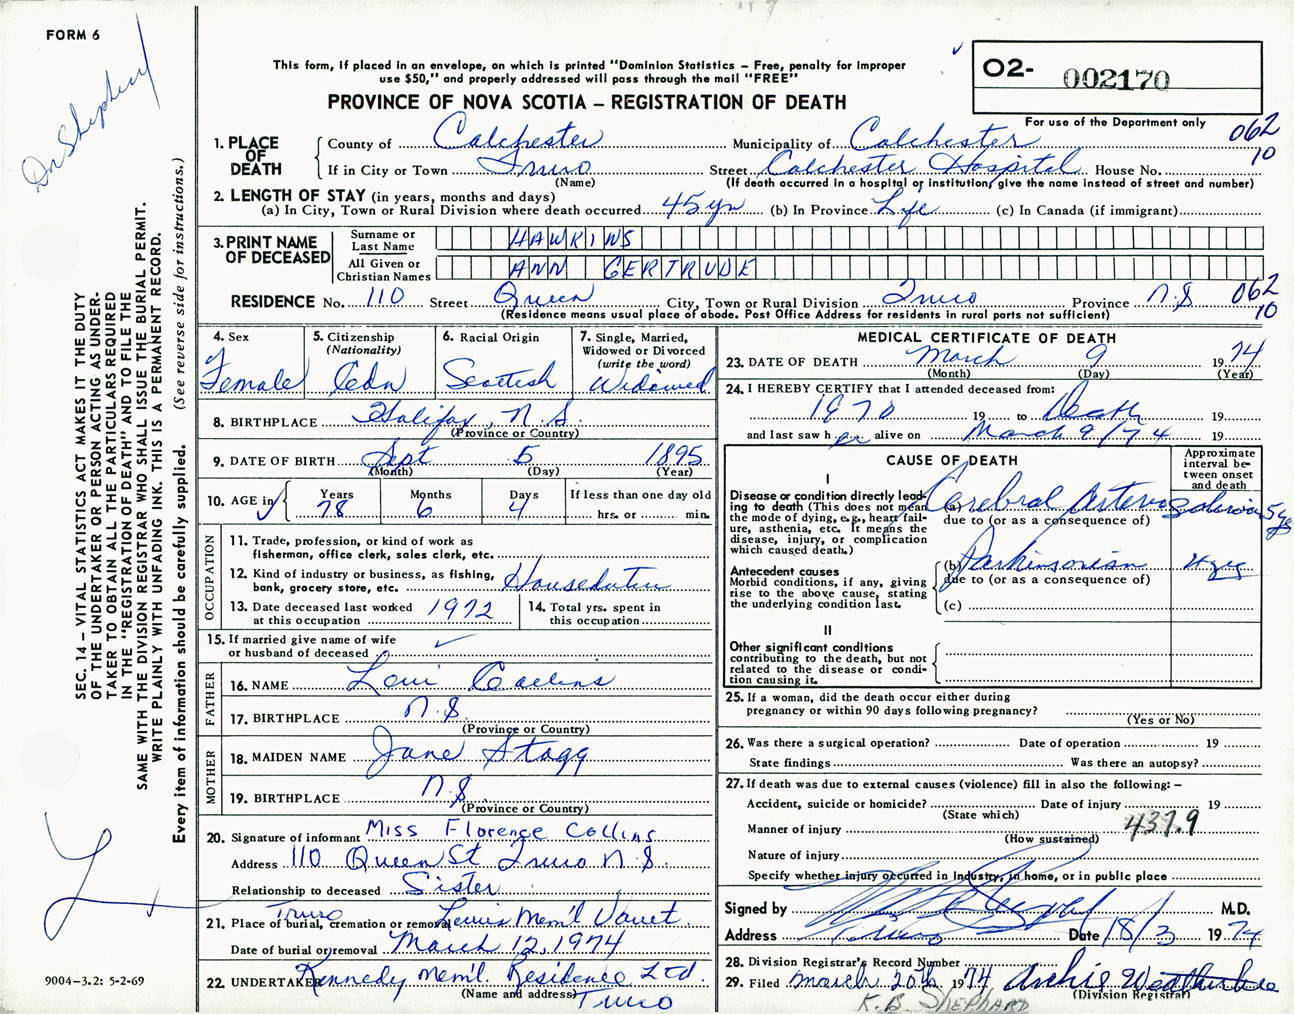 FORM 6
Dr Shepherd
This form, if placed in an envelope, on which is printed "Dominion Statistics – Free, penalty for improper
use $50," and properly addressed will pass through the mail "FREE"
PROVINCE OF NOVA SCOTIA – REGISTRATION OF DEATH
02- 002170
For use of the Department only
062
10
1. PLACE OF DEATH
County of Colchester Municipality of Colchester
If in City or Town Truro Street Colchester Hospital House No.
(Name) (If death occurred in a hospital or institution, give the name instead of street and number)
2. LENGTH OF STAY (in years, months and days)
(a) In City, Town or Rural Division where death occurred 45 yr (b) In Province Life (c) In Canada (if immigrant)
3. PRINT NAME OF DECEASED
Surname or Last Name HAWKINS
All Given or Christian Names ANN GERTRUDE
RESIDENCE No. 110 Street Queen City, Town or Rural Division Truro Province N.S 062
10
(Residence means usual place of abode. Post Office Address for residents in rural parts not sufficient)
4. Sex
Female
5. Citizenship
(Nationality)
Cdn
6. Racial Origin
Scottish
7. Single, Married,
Widowed or Divorced
(write the word)
Widowed
8. BIRTHPLACE Halifax, N.S.
(Province or Country)
9. DATE OF BIRTH Sept 5 1895
(Month) (Day) (Year)
10. AGE in
Years Months Days If less than one day old
78 6 4 hrs. or min.
OCCUPATION
11. Trade, profession, or kind of work as
fisherman, office clerk, sales clerk, etc.
12. Kind of industry or business, as fishing,
bank, grocery store, etc. Houseduties
13. Date deceased last worked
at this occupation 1972
14. Total yrs. spent in
this occupation
15. If married give name of wife
or husband of deceased
FATHER
16. NAME Collins
17. BIRTHPLACE N.S.
(Province or Country)
MOTHER
18. MAIDEN NAME Jane Stagg
19. BIRTHPLACE N.S.
(Province or Country)
20. Signature of informant Miss Florence Collins
Address 110 Queen St Truro N.S.
Relationship to deceased Sister
Truro
21. Place of burial, cremation or removal Lewis Mem'l Vault.
Date of burial or removal March 12, 1974
22. UNDERTAKER Kennedy Mem'l. Residence Ltd.
(Name and address) Truro
MEDICAL CERTIFICATE OF DEATH
23. DATE OF DEATH March 9 1974
(Month) (Day) (Year)
24. I HEREBY CERTIFY that I attended deceased from:
1970 19 to Death 19
and last saw her alive on March 9/74 19
CAUSE OF DEATH
Approximate
interval be-
tween onset
and death
I
Disease or condition directly lead-
ing to death (This does not mean
the mode of dying, e.g., heart fail-
ure, asthenia, etc. It means the
disease, injury, or complication
which caused death.)
(a) Cerebral Arteriosclerosis 5 yrs
due to (or as a consequence of)
Antecedent causes
Morbid conditions, if any, giving
rise to the above cause, stating
the underlying condition last.
(b) Parkinsonism 4 yrs
due to (or as a consequence of)
(c)
II
Other significant conditions
contributing to the death, but not
related to the disease or condi-
tion causing it.
25. If a woman, did the death occur either during
pregnancy or within 90 days following pregnancy?
(Yes or No)
26. Was there a surgical operation? Date of operation 19
State findings Was there an autopsy?
27. If death was due to external causes (violence) fill in also the following: –
Accident, suicide or homicide? Date of injury 19
(State which)
Manner of injury 437.9
(How sustained)
Nature of injury
Specify whether injury occurred in industry, in home, or in public place
Signed by M.D.
Address Truro Date 18/3 1974
28. Division Registrar's Record Number
29. Filed March 20th 1974 Archie Weatherbee
(Division Registrar)
K.B. SHEPHARD
SEC. 14 – VITAL STATISTICS ACT MAKES IT THE DUTY
OF THE UNDERTAKER OR PERSON ACTING AS UNDER-
TAKER TO OBTAIN ALL THE PARTICULARS REQUIRED
IN THE "REGISTRATION OF DEATH" AND TO FILE THE
SAME WITH THE DIVISION REGISTRAR WHO SHALL ISSUE THE BURIAL PERMIT.
WRITE PLAINLY WITH UNFADING INK. THIS IS A PERMANENT RECORD.
Every item of information should be carefully supplied. (See reverse side for instructions.)
9004–3.2: 5-2-69